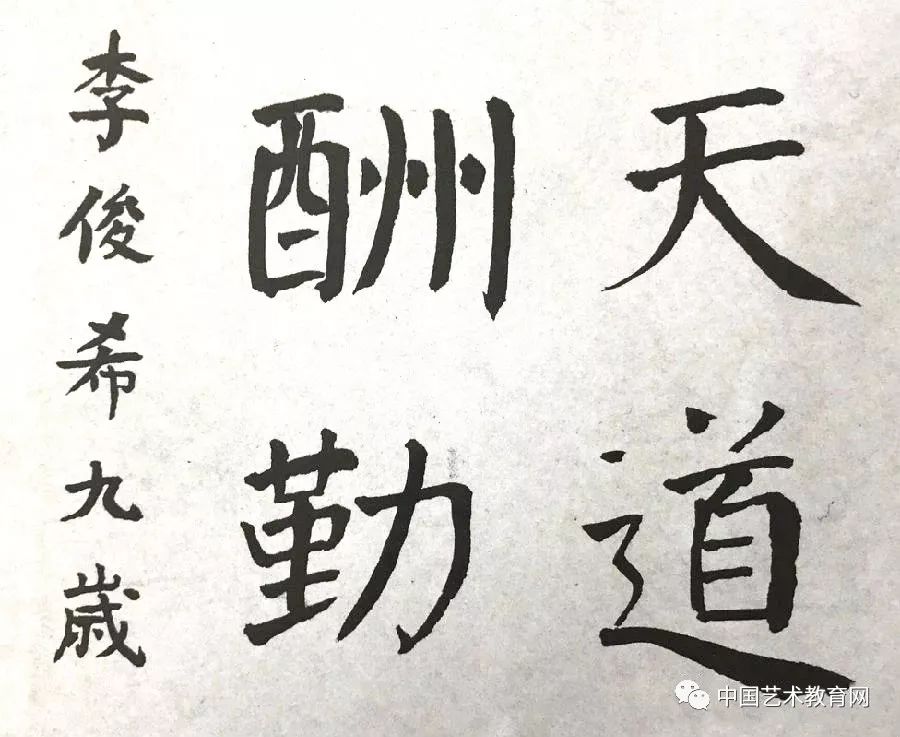 天道
酬勤
李俊希九歳
中国艺术教育网